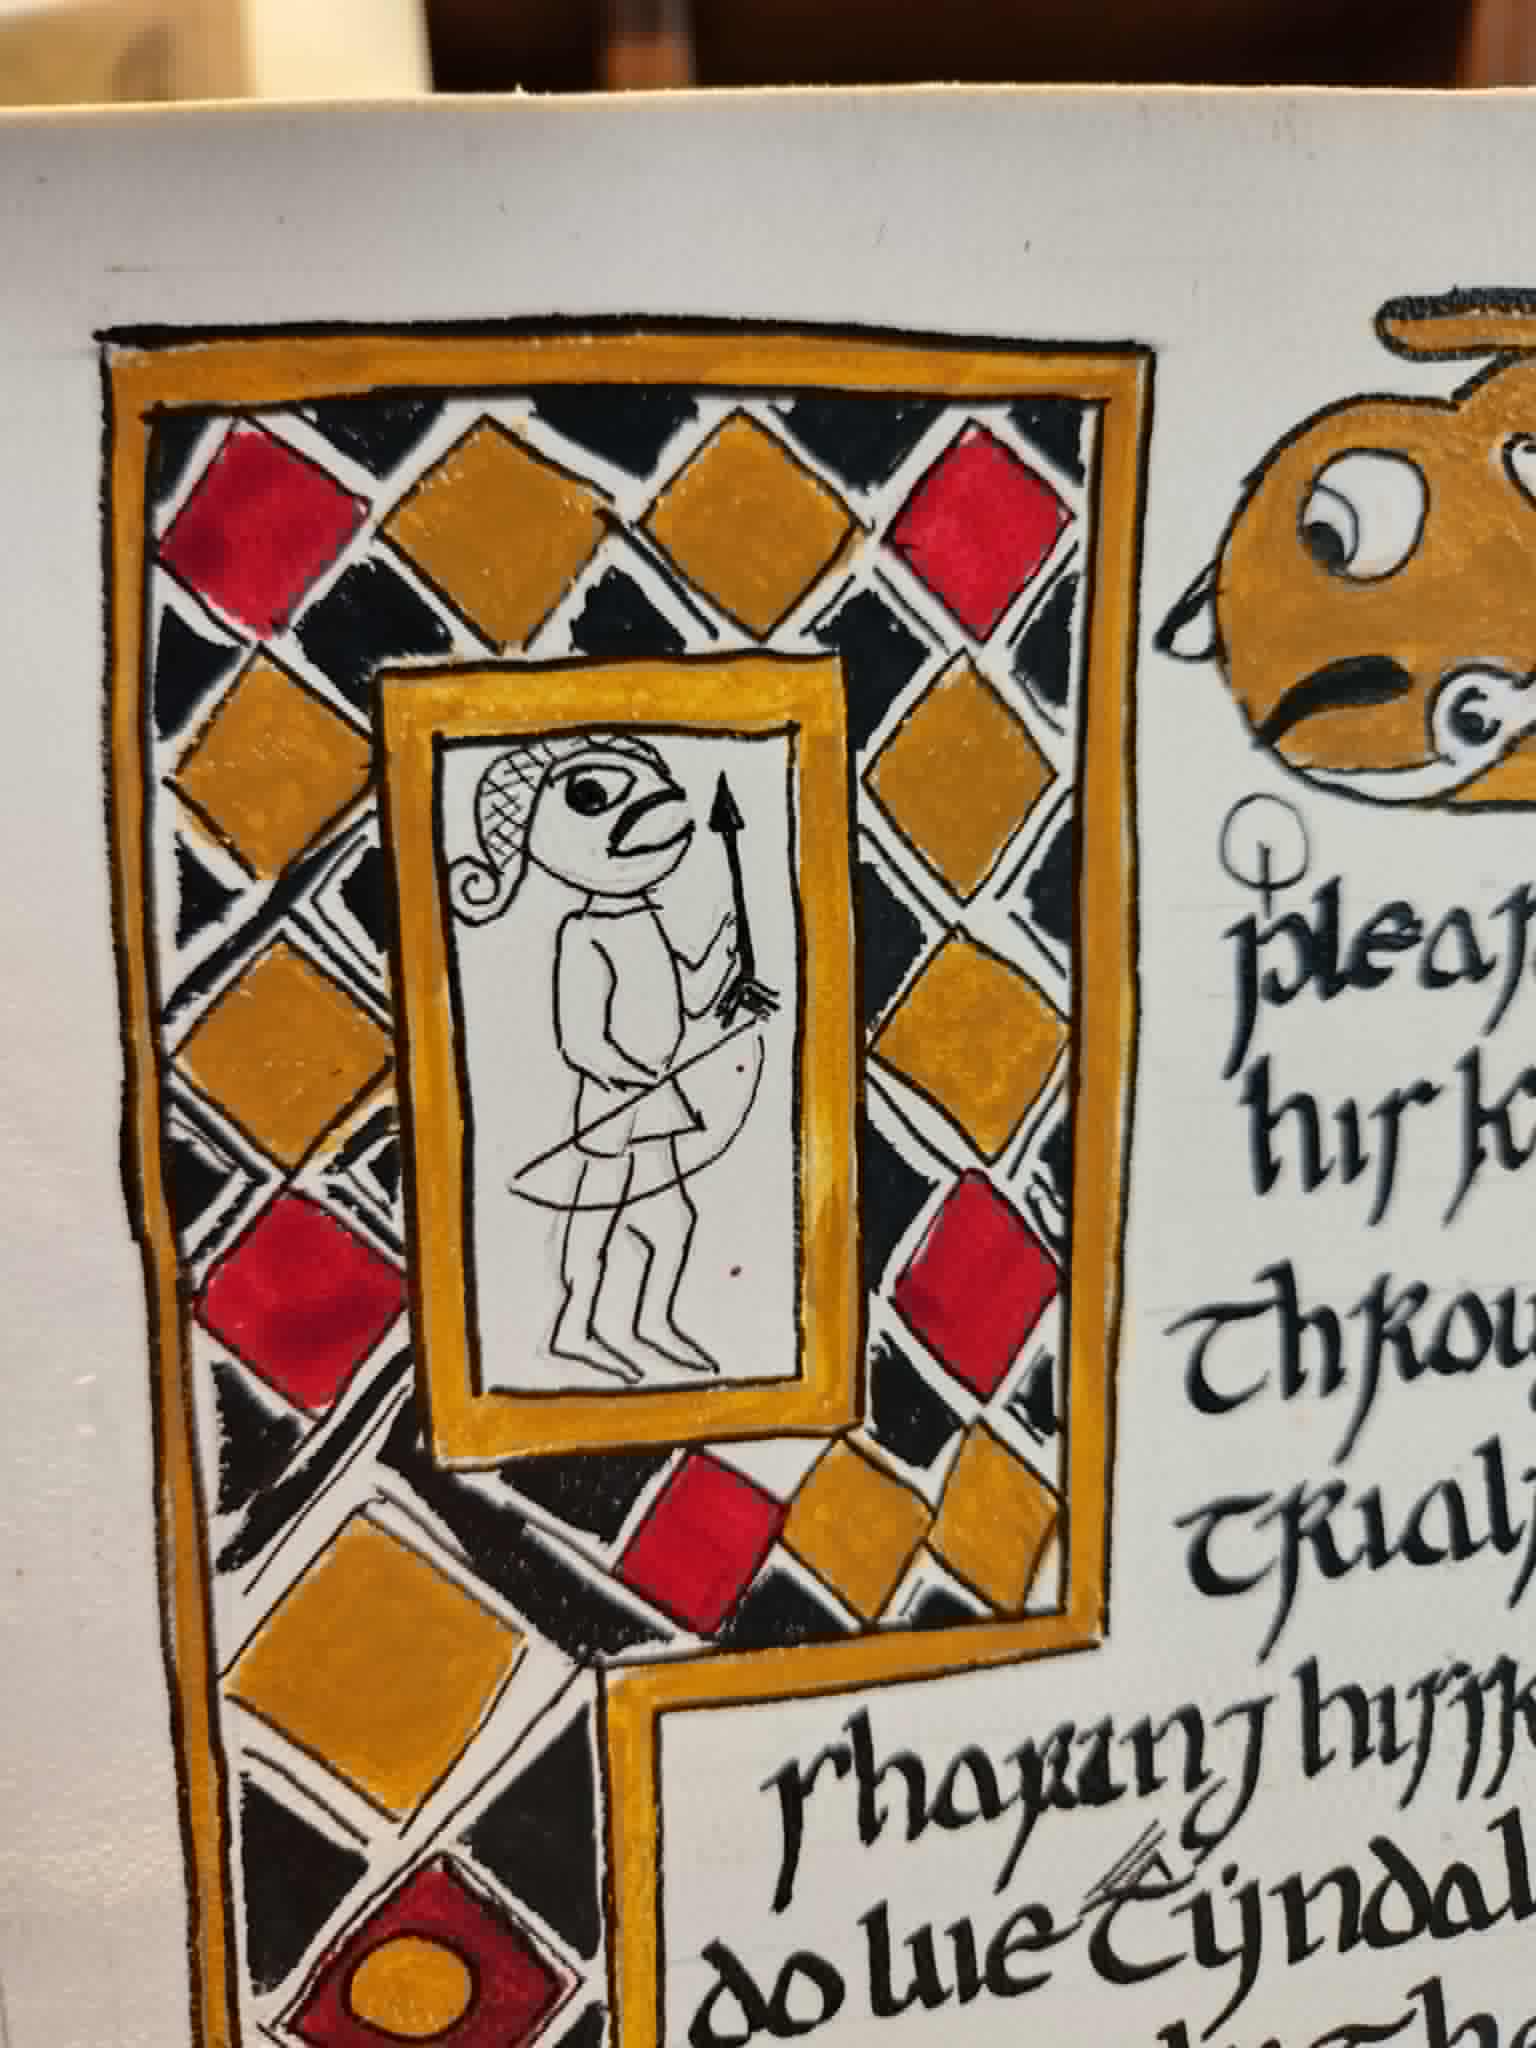 pleas
his k
Throu
Trials
sharing his sk
do we Tyndal